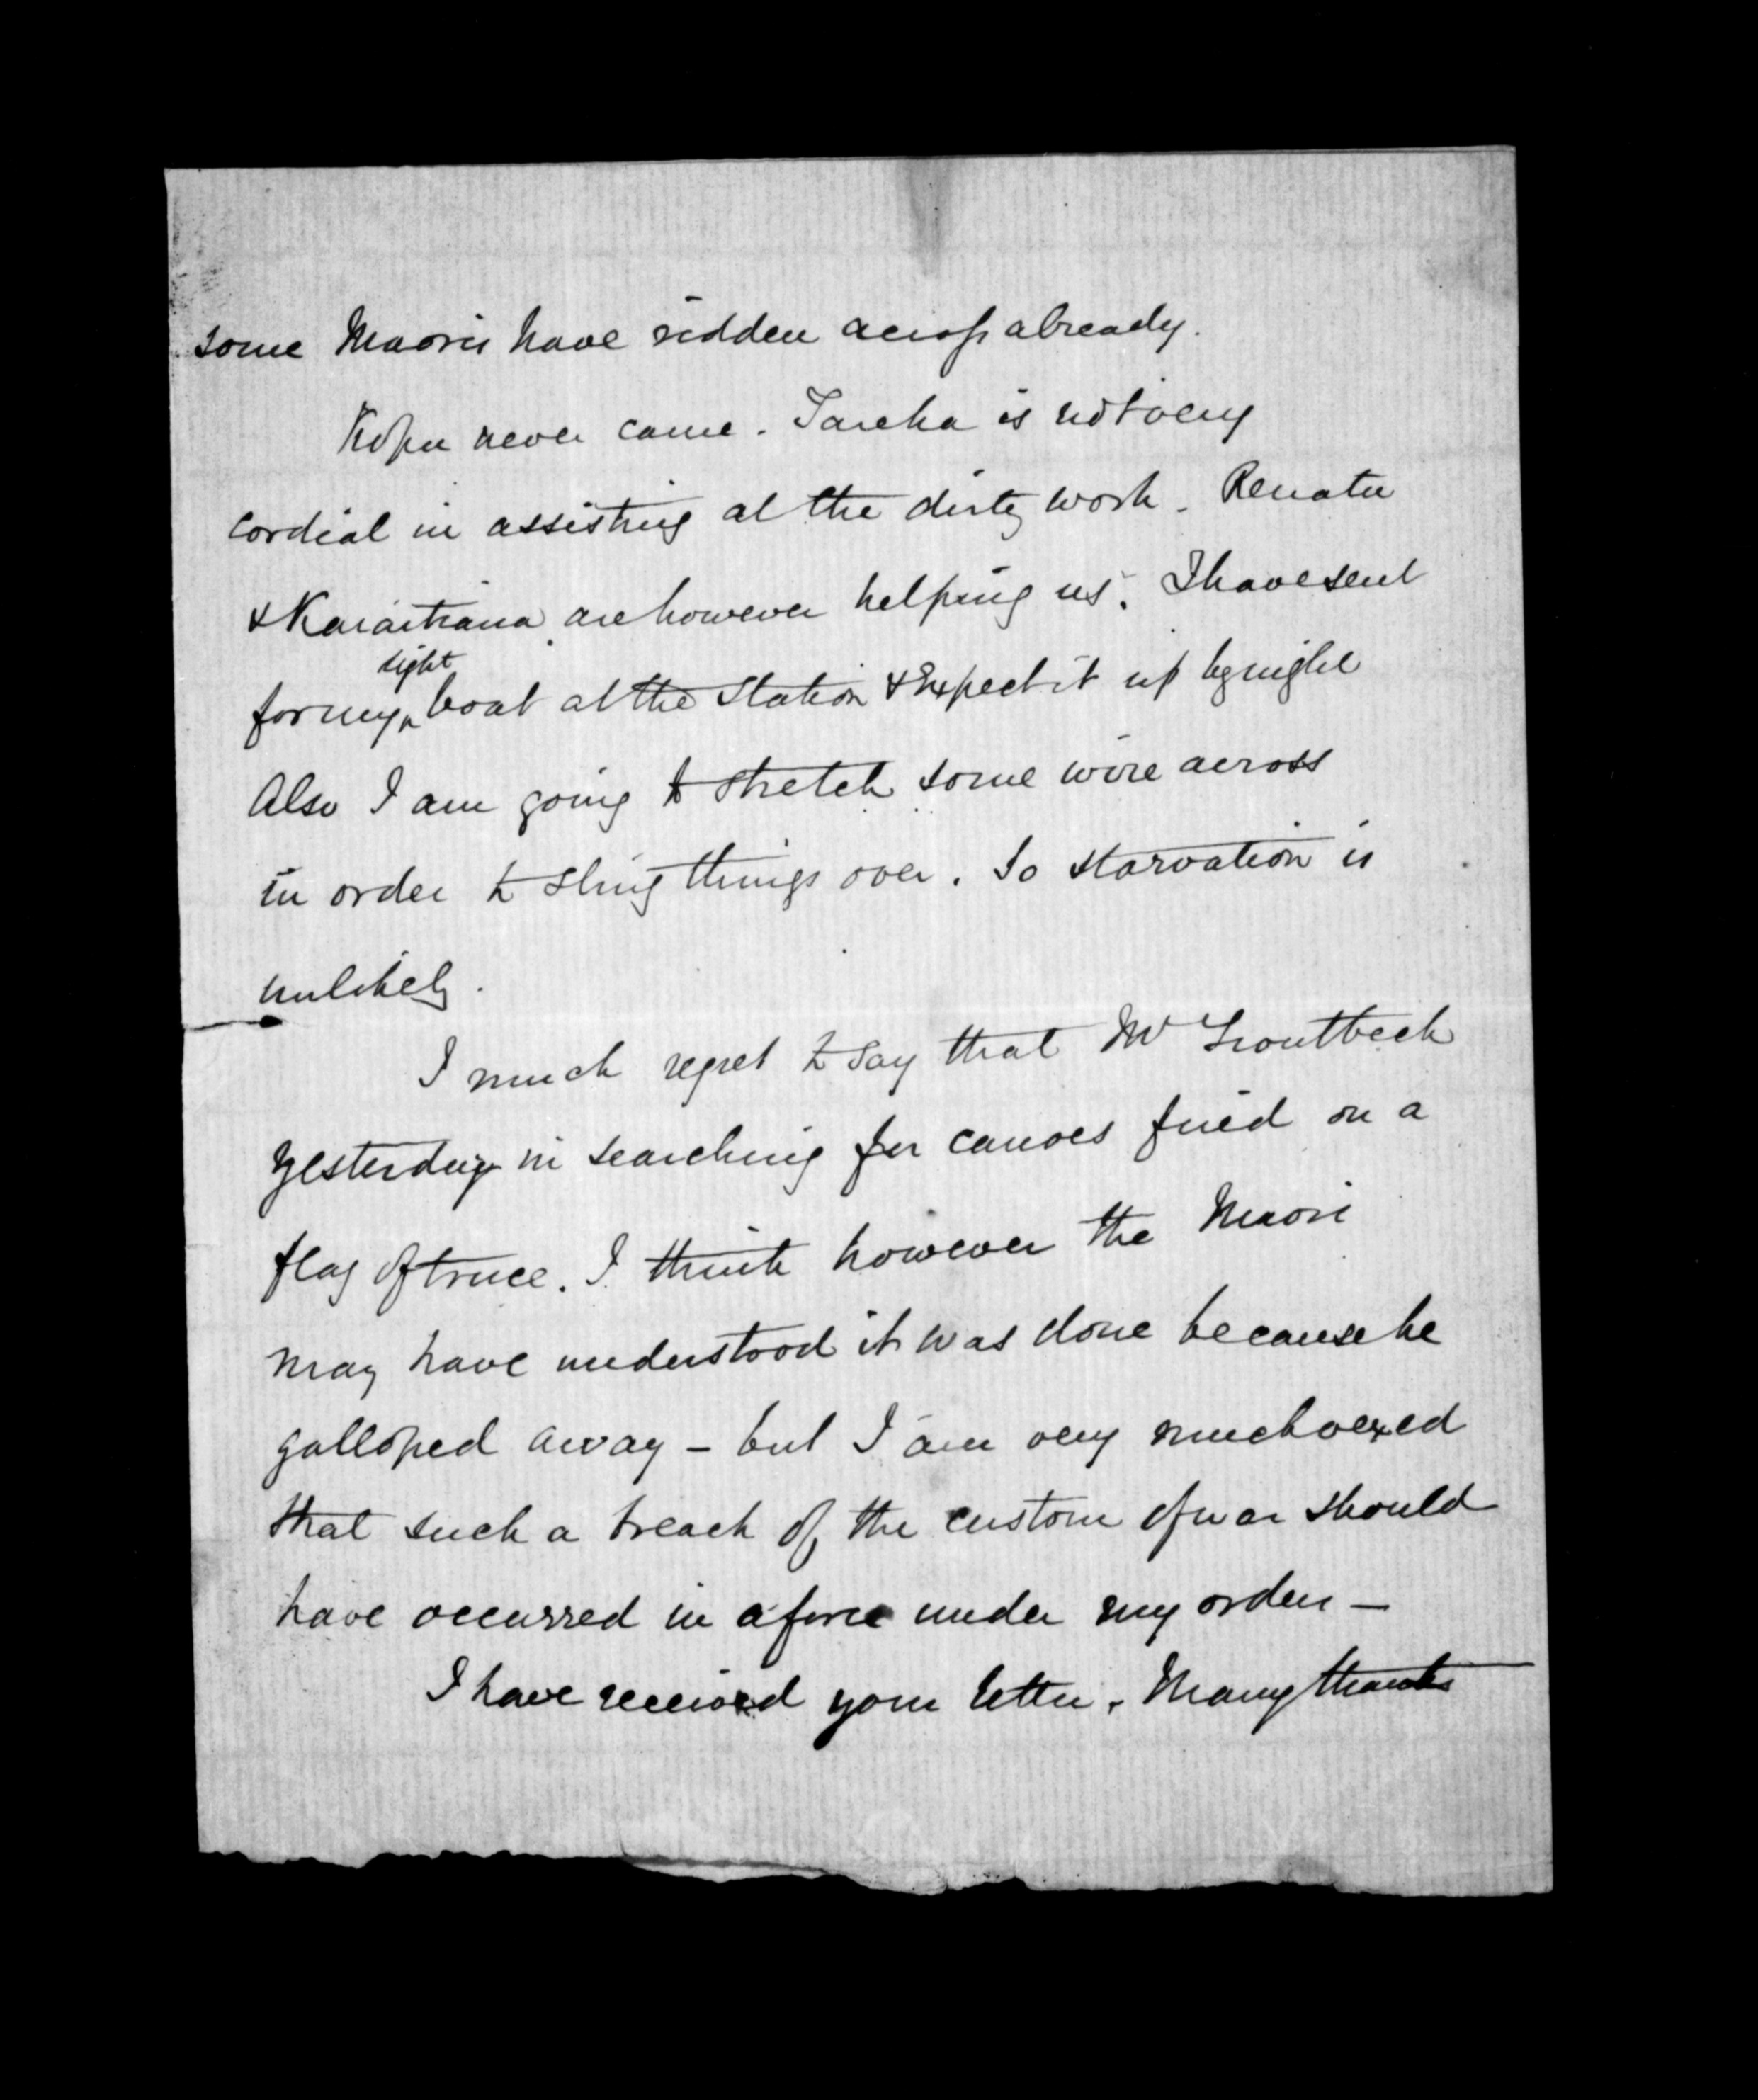 some Maories have ridden across already.
Kopu never came. Tareha is not very
cordial in assisting at the dirty work. Renata
& Karaitiana are however helping us. I have sent
for my ^light boat at the Station & Expect it up by night
Also I am going to stretch some wire across
in order to sling things over. So starvation is
unlikely.
I much regret to say that Mr Troutbeck
yesterday in searching for canoes fired on a
flag of truce. I think however the Maori
may have understood it was done because he
galloped away - but I am very much vexed
that such a breach of the custom of war should
have occurred in a force under my orders -
I have received your letter. Many thanks